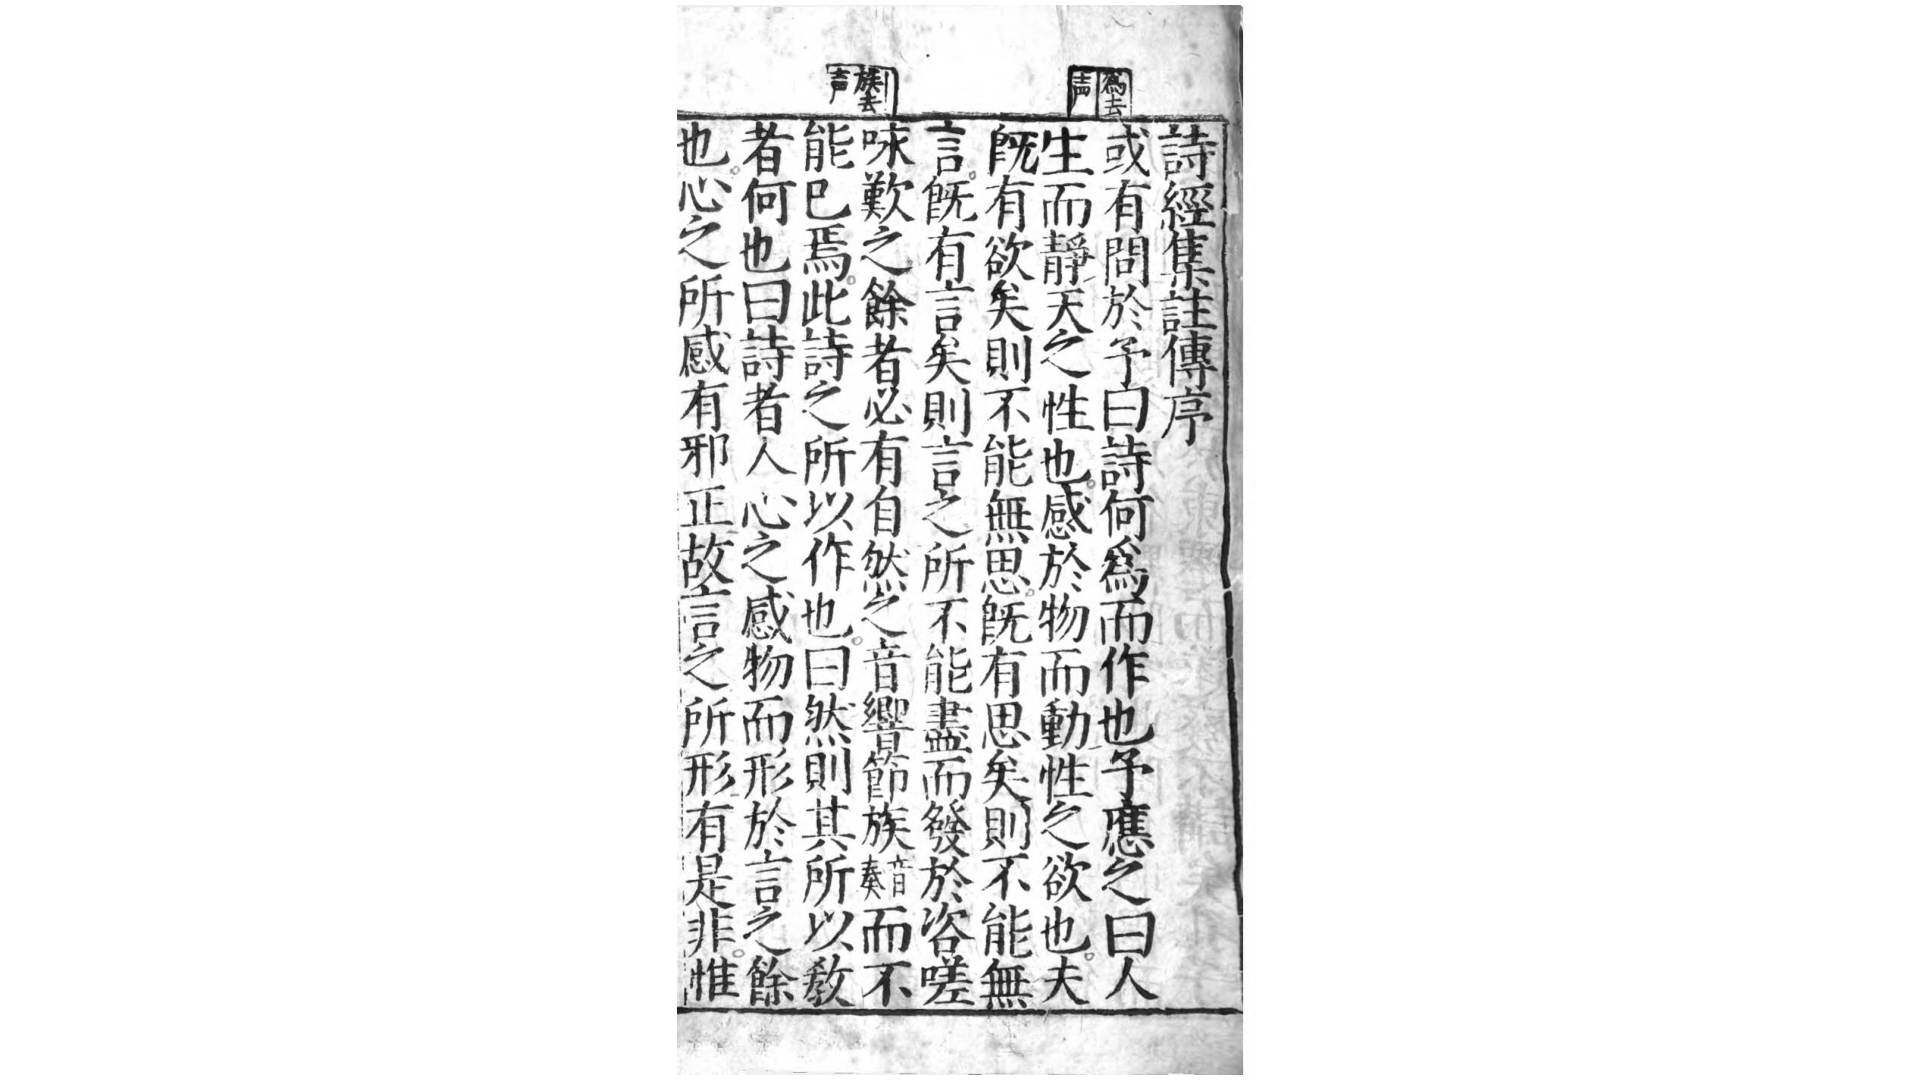 爲去声
族去声
詩經集註傳序
或有問於予曰詩何爲而作也予應之曰人
生而靜天之性也。感於物而動性之欲也。夫
旣有欲矣則不能無思。旣有思矣則不能無
言。旣有言矣則言之所不能盡而發於咨嗟
咏歎之餘者必有自然之音響節族音奏而不
能已焉。此詩之所以作也。曰然則其所以敎
者何也曰詩者人心之感物而形於言之餘
也。心之所感有邪正故言之所形有是非。惟